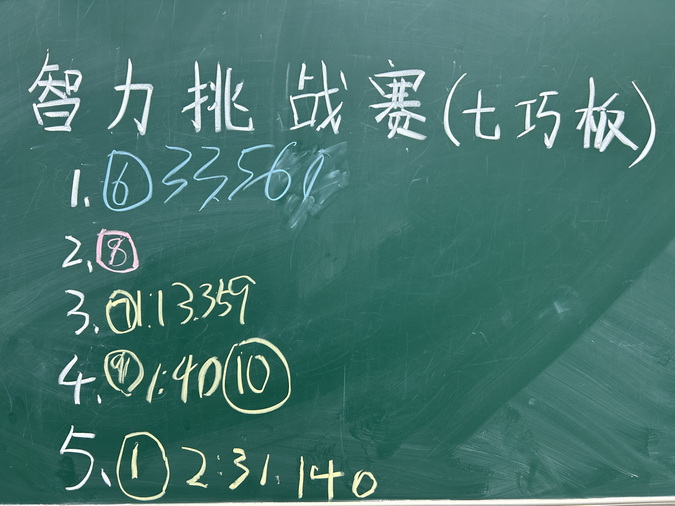 智力挑战赛(七巧板)
1. ⑥ 33.561
2. ⑧
3. ⑦ 1:13.359
4. ⑨ 1:40 ⑩
5. ① 2:31.140